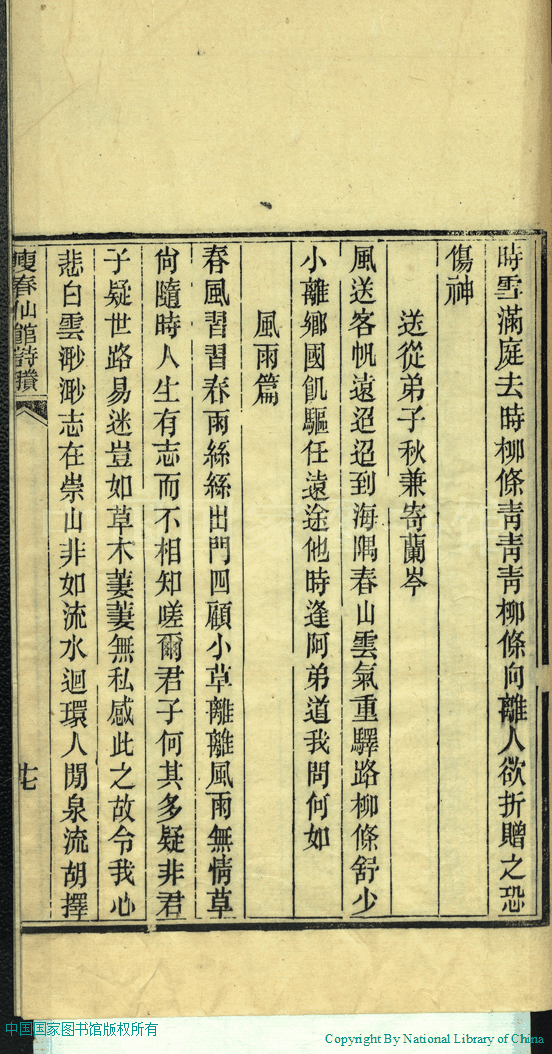 時雪滿庭去時柳條靑靑靑柳條向離人欲折贈之恐
傷神
送從弟子秋兼寄蘭岑
風送客帆遠迢迢到海隅春山雲氣重驛路柳條舒少
小離鄉國飢驅任遠途他時逢阿弟道我問何如
風雨篇
春風習習春雨絲絲出門四顧小草離離風雨無情草
尙隨時人生有志而不相知嗟爾君子何其多疑非君
子疑世路易迷豈如草木萋萋無私感此之故令我心
悲白雲渺渺志在崇山非如流水迴環人閒泉流胡擇
瘦春仙館詩賸
廿七
中国国家图书馆版权所有
Copyright By National Library of China